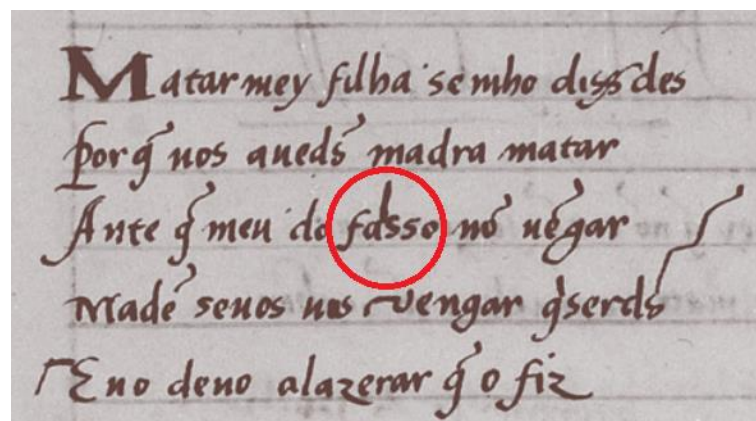 Matarmey filha semho dissdes
Porq̃ uos aueds̃ madra matar
Ante q̃ meu do falsso nõ uẽgar
Madẽ seuos uos vengar q̃serds̃
E no deuo alazerar q̃ o fiz